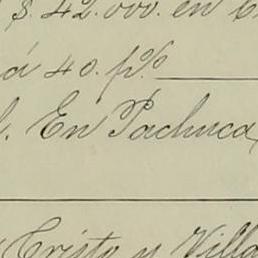 $ 42.000. en
á 40. p%
En Pachuca,
Cristo y Villa